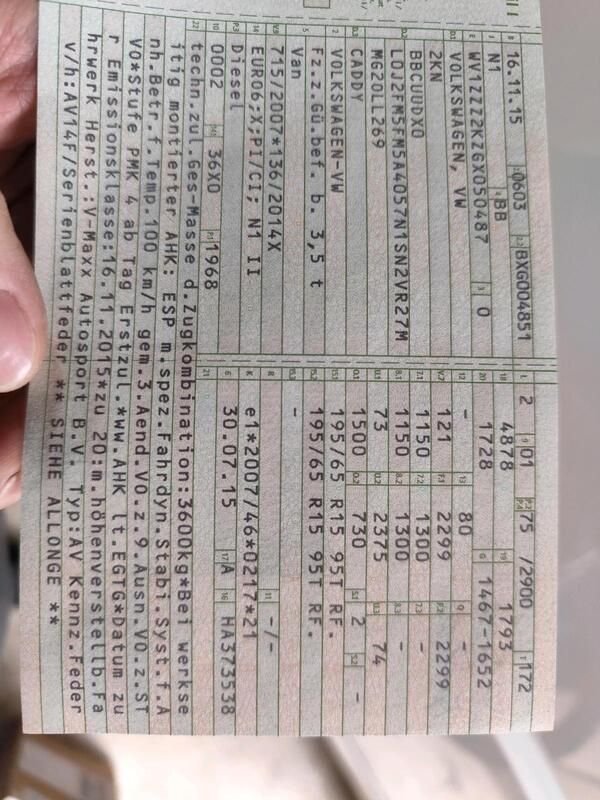 16.11.15 0603 BXG004851
N1 BB
WV1ZZZ2KZGX050487 0
VOLKSWAGEN, VW
2KN
BBCUUDX0
L0J2FM5FM5A4057N1SN2VR27M
MG20LL269
CADDY
VOLKSWAGEN-VW
Fz.z.Gü.bef. b. 3,5 t
Van
715/2007*136/2014X
EURO6;X;PI/CI; N1 II
Diesel
0002 36X0 1968
L 2 9 01 P.2 P.4 75 /2900 T 172
18 4878 19 1793
20 1728 G 1467-1652
12 - 13 80 Q -
V.7 121 F.1 2299 F.2 2299
7.1 1150 7.2 1300 7.3 -
8.1 1150 8.2 1300 8.3 -
U.1 73 U.2 2375 U.3 74
O.1 1500 O.2 730 S.1 2 S.2 -
15.1 195/65 R15 95T RF.
15.2 195/65 R15 95T RF.
15.3 -
R 11 -/-
K e1*2007/46*0217*21
6 30.07.15 17 A 16 HA373538
21
22 techn.zul.Ges-Masse d.Zugkombination:3600kg*Bei werkse
itig montierter AHK: ESP m.spez.Fahrdyn.Stabi.Syst.f.A
nh.Betr.f.Temp.100 km/h gem.3.Aend.VO.z.9.Ausn.VO.z.ST
VO*Stufe PMK 4 ab Tag Erstzul.*ww.AHK lt.EGTG*Datum zu
r Emissionsklasse:16.11.2015*zu 20:m.höhenverstellb.Fa
hrwerk Herst.:V-Maxx Autosport B.V. Typ:AV Kennz.Feder
v/h:AV14F/Serienblattfeder ** SIEHE ALLONGE **